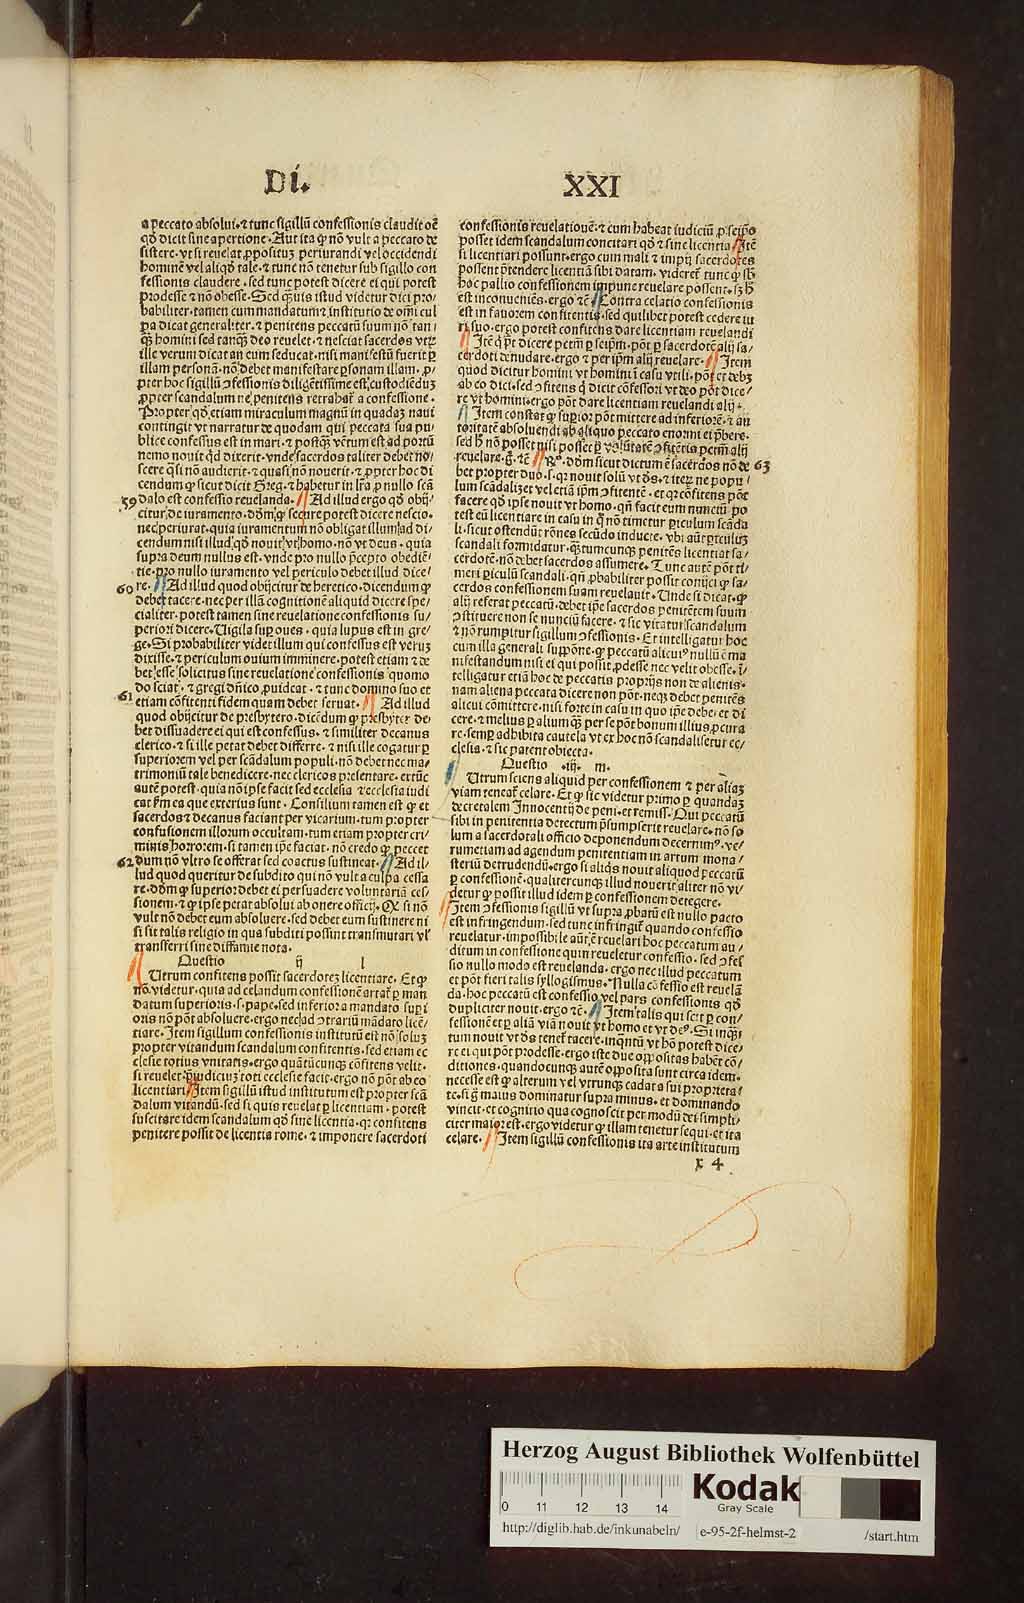 Di.
XXI
a peccato absolui. ⁊ tunc sigillū confessionis claudit oē
qđ dicit sine apertione. Aut ita ꝙ nō vult a peccato de
sistere. vt si reuelat ꝓposituȝ periurandi vel occidendi
hominē vel aliqđ tale. ⁊ tunc nō tenetur sub sigillo con
fessionis claudere. sed tunc potest dicere ei qui potest
prodesse ⁊ nō obesse. Sed qͣuis istud videtur dici pro/
babiliter. tamen cum mandatum ⁊ institutio de omi cul
pa dicat generaliter. ⁊ penitens peccatū suum nō tan/
qͣȝ homini sed tanqͣȝ deo reuelet. ⁊ nesciat sacerdos vtrȝ
ille verum dicat an eum seducat. nisi manifestū fuerit ꝑ
illam personā. nō debet manifestare ꝑsonam illam. ꝓ/
pter hoc sigillū ꝯfessionis diligētissime est custodienduȝ
ꝓpter scandalum ne penitens retrahat᷑ a confessione.
Propter qđ etiam miraculum magnū in quadaȝ naui
contingit vt narratur de quodam qui peccata sua pu/
blice confessus est in mari. ⁊ postqͣȝ ventum est ad portū
nemo nouit qđ dixerit. vnde sacerdos taliter debet no/
scere qͥ si nō audierit. ⁊ quasi nō nouerit. ⁊ ꝓpter hoc di
cendum ꝙ sicut dicit Greg. ⁊ habetur in lr̄a ꝓ nullo scā
59 dalo est confessio reuelanda. Ad illud ergo qđ obij/
citur de iuramento. dōm ꝙ secure potest dicere nescio.
nec periurat. quia iuramentum nō obligat illum ad di/
cendum nisi illud qđ nouit vt homo. nō vt deus. quia
supra deum nullus est. vnde pro nullo p̄cepto obediē/
tie. pro nullo iuramento vel periculo debet illud dice/
60 re. Ad illud quod obijcitur de heretico. dicendum ꝙ
debet tacere. nec per illā cognitionē aliquid dicere spe/
cialiter. potest tamen sine reuelatione confessionis su/
periori dicere. Uigila suꝑ oues. quia lupus est in gre/
ge. Si probabiliter videt illum qui confessus est veruȝ
dixisse. ⁊ periculum ouium imminere. potest etiam ⁊ de
bet esse solicitus sine reuelatione confessionis quomo
do sciat. ⁊ gregi dn̄ico ꝓuideat. ⁊ tunc domino suo et
61 etiam cōfitenti fidem quam debet seruat. Ad illud
quod obijcitur de presbytero. dicēdum ꝙ presbyter de
bet dissuadere ei qui est confessus. ⁊ similiter decanus
clerico. ⁊ si ille petat debet differre. ⁊ nisi ille cogatur ꝑ
superiorem vel per scādalum populi. nō debet nec ma/
trimoniū tale benedicere. nec clericos presentare. ex tūc
autē potest. quia nō ipse facit sed ecclesia. ⁊ ecclesia iudi
cat fm̄ ea que exterius sunt. Consilium tamen est ꝙ et
sacerdos ⁊ decanus faciant per vicarium. tum propter
confusionem illorum occultam. tum etiam propter cri/
minis horrorem. si tamen ip̄e faciat. nō credo ꝙ peccet
62 dum nō vltro se offerat sed coactus sustineat. Ad il/
lud quod queritur de subdito qui nō vult a culpa cessa
re. dōm ꝙ superior debet ei persuadere voluntariā ces/
sionem. ⁊ ꝙ ip̄se petat absolui ab onere officij. Qͥ si nō
vult nō debet eum absoluere. sed debet eum sustinere ni
si sit talis religio in qua subditi possint transmutari vl᷑
transferri sine diffamie nota.
Questio ij l
Utrum confitens possit sacerdoteȝ licentiare. Et ꝙ
nō videtur. quia ad celandum confessionē artat᷑ ꝑ man
datum superioris. s. pape. sed inferior a mandato supi
oris nō pōt absoluere. ergo nec ad ꝯtrariū mādato licē/
tiare. Item sigillum confessionis institutū est nō soluȝ
propter vitandum scandalum confitentis. sed etiam ec
clesie totius vnitatis. ergo quātūcunqȝ cōfitens velit.
si reuelet p̄iudiciuȝ toti ecclesie facit. ergo nō pōt ab eo
licentiari. Item sigillū istud institutum est propter scā
dalum vitandū. sed si quis reuelat ꝑ licentiam. potest
suscitare idem scandalum qđ sine licentia. qꝛ confitens
penitere possit de licentis rome. ⁊ imponere sacerdoti
confessionis reuelationē. ⁊ cum habeat iudiciū ꝓ seip̄o
posset idem scandalum concitari qđ ⁊ sine licentia. Itē
si licentiari possunt. ergo cum mali ⁊ impij sacerdotes
possent p̄tendere licentiā sibi datam. videret᷑ tunc ꝙ sb̄
hoc pallio confessionem impune reuelare possent. sȝ h̄
est inconueniēs. ergo ⁊c̄. Contra celatio confessionis
est in fauorem confitentis. sed quilibet potest cedere iu
ri suo. ergo potest confitens dare licentiam reuelandi
Itē qͥ pōt dicere petm̄ ꝑ seip̄m. pōt ꝑ sacerdotē alij sa/
cerdoti denudare. ergo ⁊ per ip̄m alij reuelare. Item
quod dicitur homini vt homini ī casu vtili. pōt et debȝ
ab eo dici. sed ꝯfitens qͥ dicit cōfessori vt deo pōt dice/
re vt homini. ergo pōt dare licentiam reuelandi alij.
Item constat ꝙ suꝑior pōt mittere ad inferiorē. ⁊ au
toritatē absoluendi ab aliquo peccato enormi ei p̄bere.
sed h̄ nō posset nisi posset ꝑ volūtatē ꝯfitētis petm̄ alij
reuelare. g̊. ⁊c̄. Rº. dōm sicut dictum ē sacerdos nō de 63
bet propter duo. s. qꝛ nouit solū vt dꝰ. ⁊ iteȝ ne popu/
lum scādalizet vel etiam ip̄m ꝯfitentē. et qꝛ cōfitens pōt
facere qđ ip̄se nouit vt homo. qn̄ facit eum nunciū. po
test eū licentiare in casu in q̊ nō timetur ꝑiculum scāda
li. sicut ostendūt rōnes secūdo inducte. vbi aūt ꝑiculuȝ
scandali formidatur. qͣtumcunqȝ penitēs licentiat sa/
cerdotē. nō debet sacerdos assumere. Tunc autē pōt ti/
meri ꝑiculū scandali. qn̄ ꝓbabiliter possit conijci ꝙ sa/
cerdos confessionem suam reuelauit. Unde si dicat. ꝙ
alij referat peccatū. debet ip̄e sacerdos penitētem suum
ꝯstituere non se nunciū facere. ⁊ sic vitatur scandalum
⁊ nō rumpitur sigillum ꝯfessionis. Et intelligatur hoc
cum illa generali supponē. ꝙ peccatū alicuiꝰ nulli ē ma
nifestandum nisi ei qui possit ꝓdesse nec velit obesse. ī/
telligatur etiā hoc de peccatis proprijs non de alienis.
nam aliena peccata dicere non pōt. neqȝ debet penitēs
alicui cōmittere. nisi forte in casu in quo ip̄e debet et di
cere. ⁊ melius ꝑ alium qͣȝ per se pōt bonum illius ꝓcura
re. semꝑ adhibita cautela vt ex hoc nō scandalisetur ec/
clesia. ⁊ sic patent obiecta.
Questio .iij. m.
Utrum sciens aliquid per confessionem ⁊ per aliaȝ
viam teneat᷑ celare. Et ꝙ sic videtur primo ꝑ quandaȝ
decretalem Innocentij de peni. et remiss. Qui peccatū
sibi in penitentia detectum p̄sumpserit reuelare. nō so
lum a sacerdotali officio deponendum decernimꝰ. ve/
rumetiam ad agendum penitentiam in artum mona/
steriū detrudendū. ergo si aliqͥs nouit aliquod peccatū
ꝑ confessionē. qualitercunqȝ illud nouerit aliter nō vi/
detur ꝙ possit illud idem ꝑ confessionem detegere.
Item ꝯfessionis sigillū vt supra ꝓbatū est nullo pacto
est infringendum. sed tunc infringit᷑ quando confessio
reuelatur. impossibile aūt ē reuelari hoc peccatum au/
ditum in confessione quin reueletur confessio. sed ꝯfes
sio nullo modo est reuelanda. ergo nec illud peccatum
et pōt fieri talis syllogismus. Nulla cōfessio est reuelā
da. hoc peccatū est confessio vel pars confessionis qđ
dupliciter nouit. ergo ⁊c̄. Item talis qui scit ꝑ con/
fessionē et ꝑ aliā viā nouit vt homo et vt deꝰ. Si inqͣȝ/
tum nouit vt dꝰ tenet᷑ tacere. inqͣtū vt hō potest dice/
re ei qui pōt prodesse. ergo iste due oppositas habēt cō/
ditiones. quandocunqȝ autē opposita sunt circa idem.
necesse est ꝙ alterum vel vtrunqȝ cadat a sui proprieta/
te. si qͥ maius dominatur supra minus. et dominando
vincit. et cognitio qua cognoscit per modū dei simpli/
citer maior est. ergo videtur ꝙ illam tenetur sequi. et ita
celare. Item sigillū confessionis ita arte institutum
x 4
Herzog August Bibliothek Wolfenbüttel
0 11 12 13 14
Kodak
Gray Scale
http://diglib.hab.de/inkunabeln/
e-95-2f-helmst-2
/start.htm